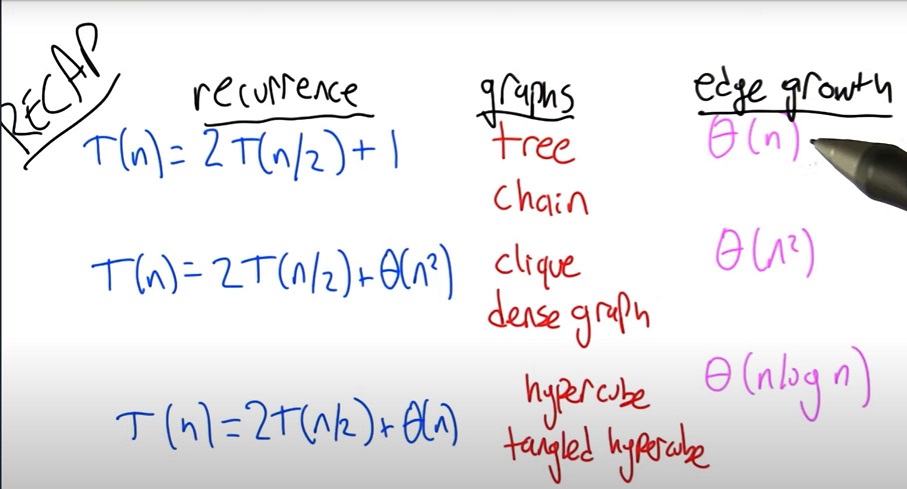 RECAP
recurrence graphs edge growth
T(n) = 2T(n/2) + 1 tree θ(n)
chain
T(n) = 2T(n/2) + θ(n²) clique θ(n²)
dense graph
T(n) = 2T(n/2) + θ(n) hypercube θ(n log n)
tangled hypercube